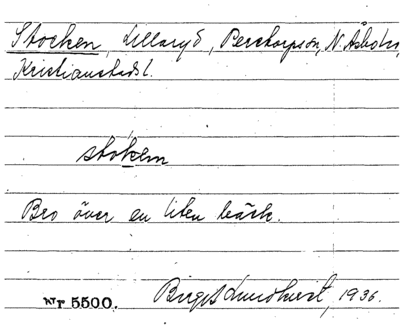 Stocken, Lillaryd, Perstorpssn, N. Åsbohd,
Kristianstads l.
stokem
Bro över en liten bäck.
Nr 5500. Birgit Lundkvist, 1936.